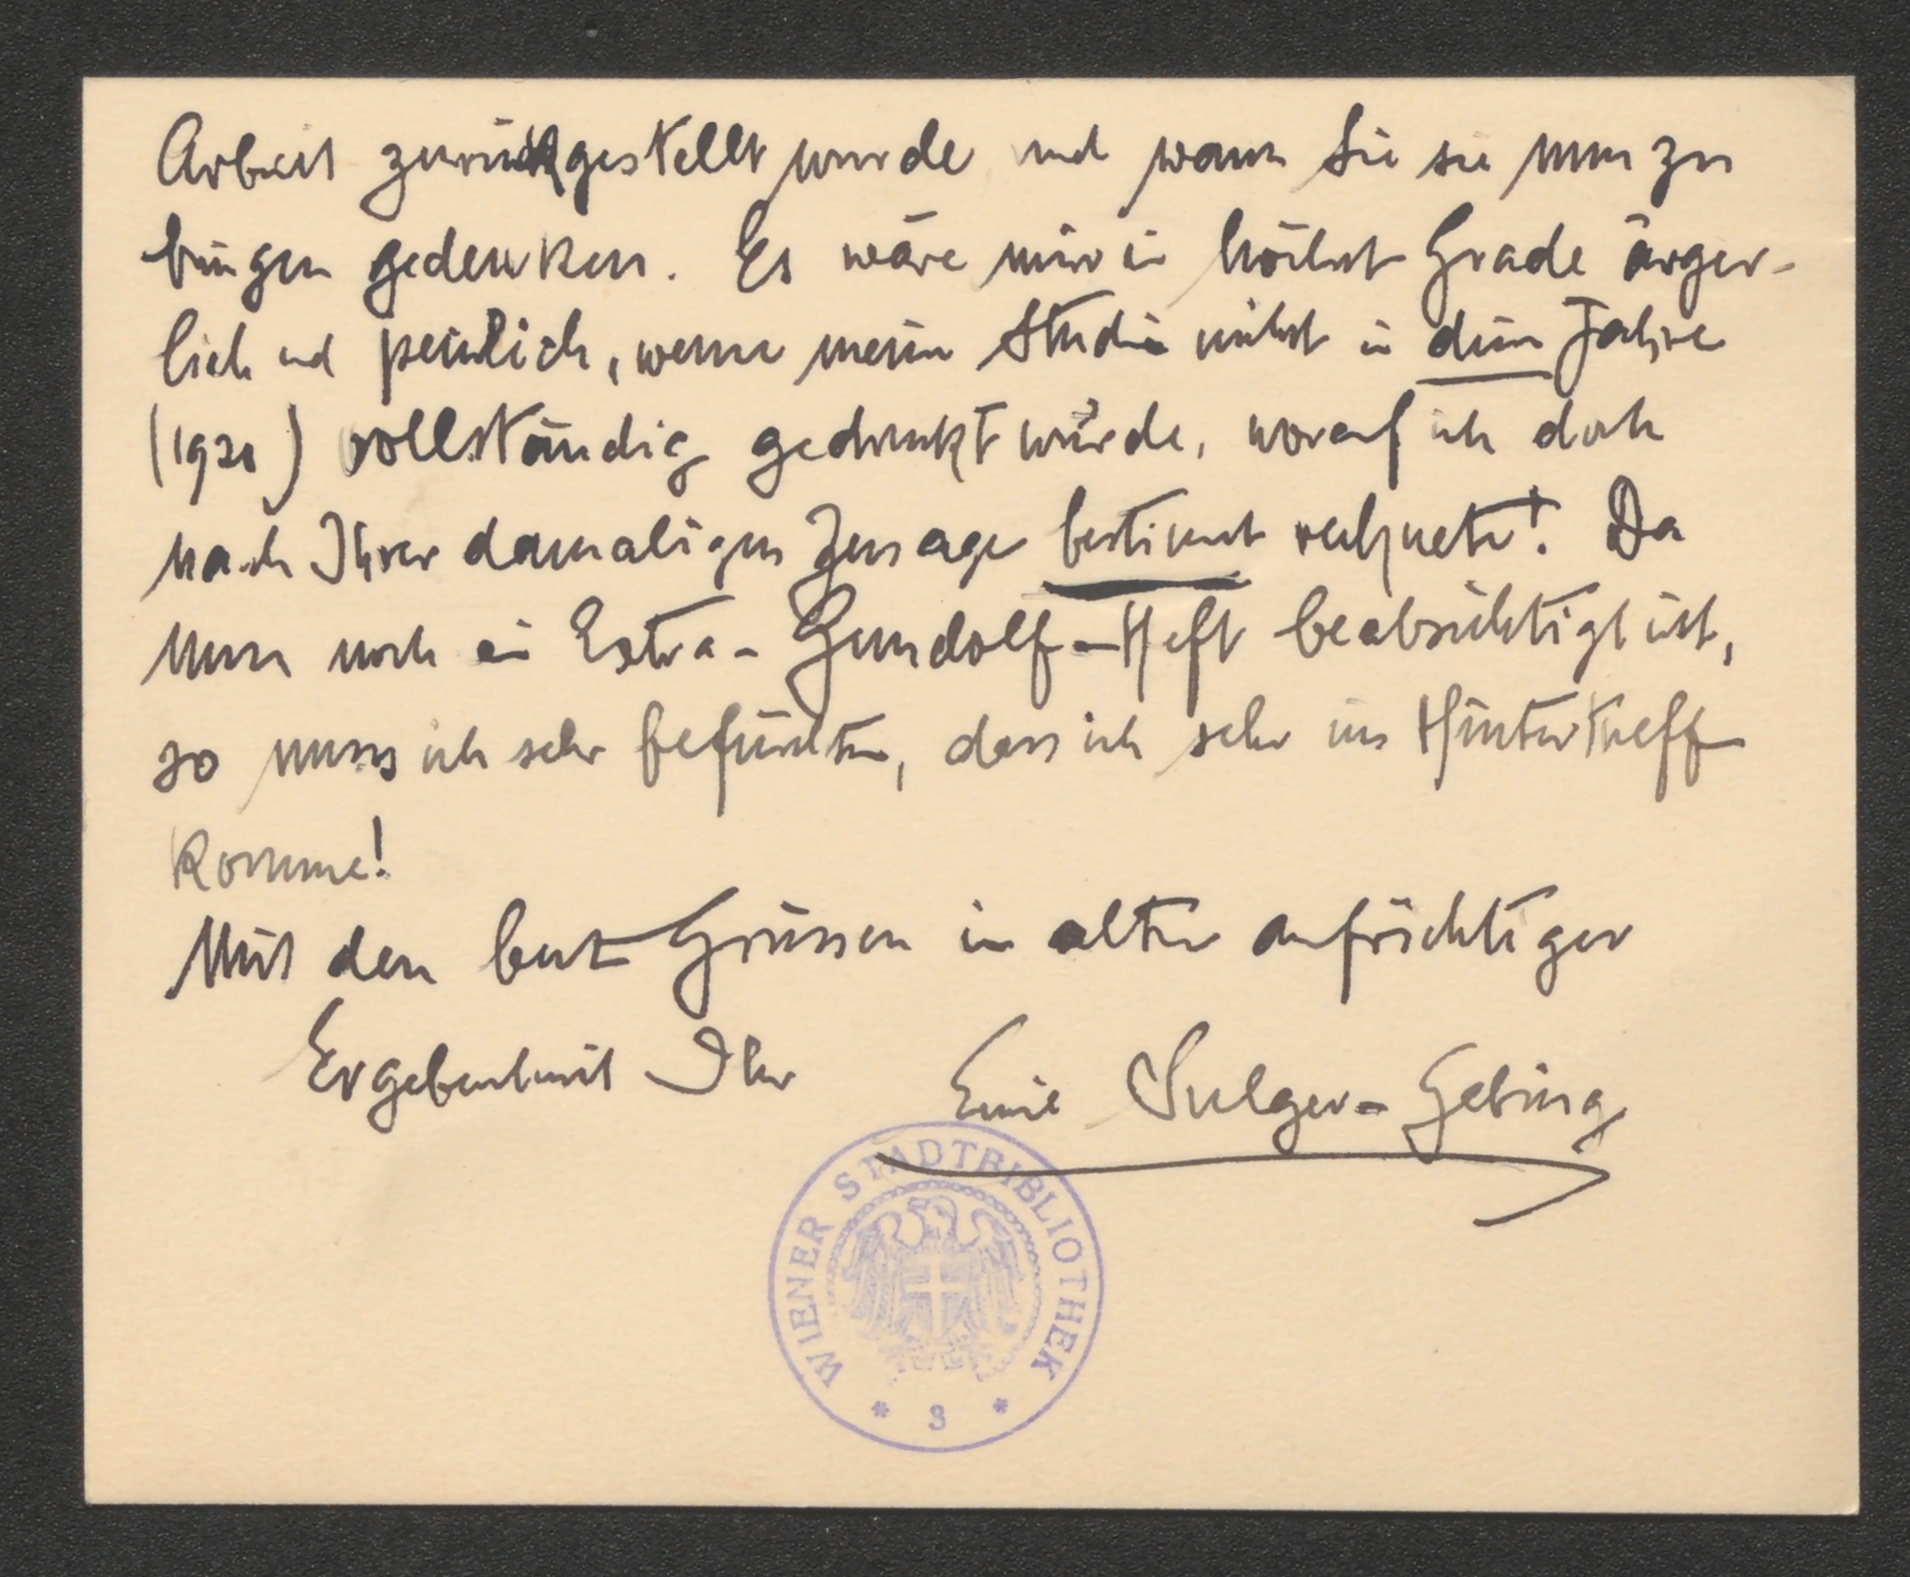 Arbeit zurückgestellt wurde und wann Sie sie nun zu
bringen gedenken. Es wäre mir in höchst Grade ärger-
lich und peinlich, wenn meine Studie nicht in diesem Jahre
(1921) vollständig gedruckt würde, worauf ich doch
nach Ihrer damaligen Zusage bestimmt rechnete! Da
nun noch ein Extra-Gundolf-Heft beabsichtigt ist,
so muss ich sehr befürchten, dass ich sehr ins Hintertreffen
komme!
Mit den best Grüssen in alter aufrichtiger
Ergebenheit Ihr Emil Sulger-Gebing
WIENER STADTBIBLIOTHEK
* 3 *